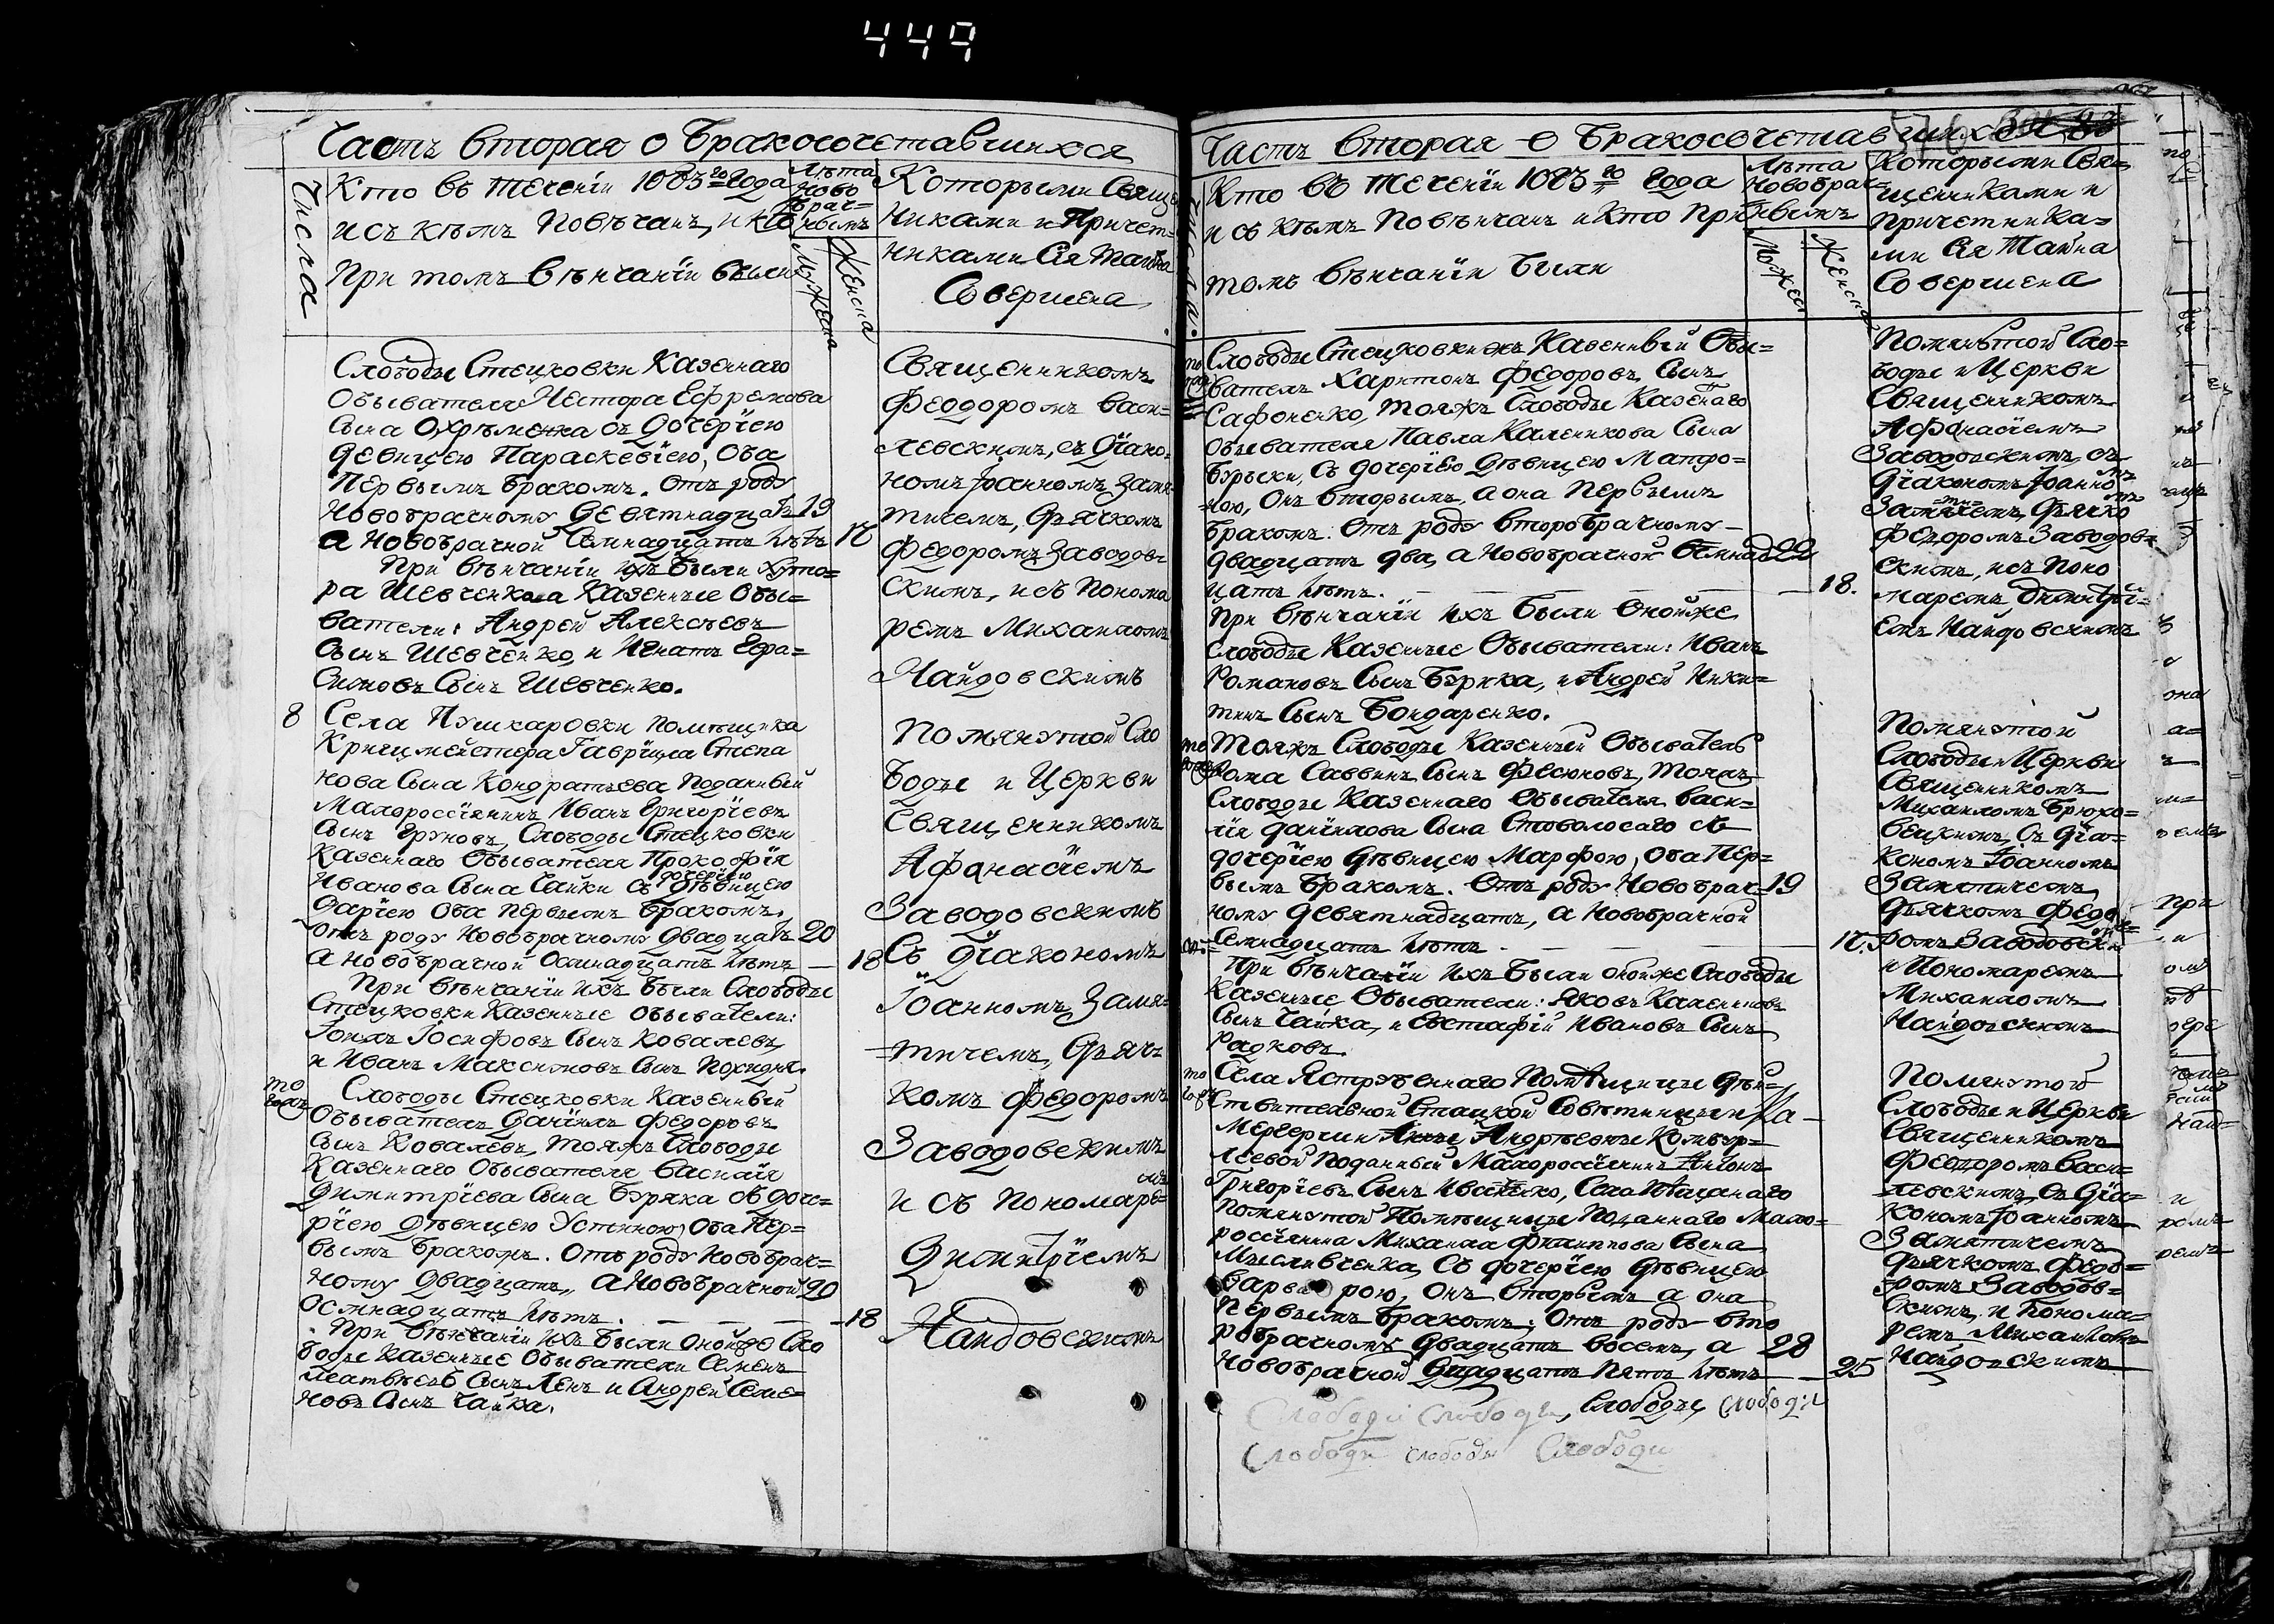 449
Часть вторая о бракосочетавшихся
Числа
Кто въ теченіи 1823го года
и съ кѣмъ повѣнчанъ, и кто
при томъ вѣнчаніи были
Лѣта
ново
брач=
ныхъ
Мужеска
Женска
Которыми Священ
никами и Причет=
никами Сія тайна
Совершена
Слободы Стецковки Казеннаго
Обывателя Нестора Ефремова
Сына Охрѣменка съ дочерїею
девицею Параскевїею, Оба
Первымъ бракомъ. Отъ роду
Новобрачному Девятнадцать 19
а Новобрачной Семнадцать лѣтъ 17
При вѣнчаніи ихъ были хуто=
ра Шевченкова Казенные Обы=
ватели: Андрей Алексѣевъ
Сынъ Шевченко, и Игнатъ Гера=
симовъ Сынъ Шевченко.
Священникомъ
Феодоромъ Васи=
левскимъ, съ Дїако=
номъ Іоанномъ Замя=
тичемъ, Дьячкомъ
Федоромъ Заводов=
скимъ, исъ Понома
ремъ Михаиломъ
Найдовскимъ
8 Села Пушкаровки помѣщика
Кригцмейстера Гавріила Степа
нова Сына Кондратьева Подданный
Малороссїянинъ Иванъ Григорїевъ
Сынъ Груновъ, Слободы Стецковки
Казеннаго Обывателя Прокофїя
Иванова Сына Чайки съ дочерїею дѣвицею
Дарїею Оба первымъ бракомъ.
Отъ роду Новобрачному двадцать 20
а Новобрачной Осмнадцать лѣтъ — 18
При вѣнчаніи ихъ были Слободы
Стецковки Казенные Обыватели:
Іоиль Іосифовъ Сынъ Ковалевъ,
и Иванъ Максимовъ Сынъ Походня.
Помянутой Сло
боды и Церкви
Священникомъ
Афанасїемъ
Заводовскимъ
Съ Дїакономъ
Іоанномъ Замя=
=тичемъ, Дьяч=
комъ Федоромъ
Заводовскимъ
и съ Пономаре=
мъ
Димитрїемъ
Найдовскимъ
то
гожъ
Слободы Стецковки Казенный
Обыватель Данїилъ Федоровъ
Сынъ Ковалевъ, тояжъ Слободы
Казеннаго Обывателя Василїя
Димитрїева Сына Буряка съ доче=
рїею дѣвицею Устиною, Оба Пер=
вымъ бракомъ. Отъ роду Новобрач=
ному двадцать, а Новобрачной 20
Осмнадцать лѣтъ. — — — 18
При вѣнчаніи ихъ были оной же Сло
боды Казенные Обыватели Семенъ
Матвѣевъ Сынъ Ленъ и Андрей Семе=
новъ Сынъ Чайка.
Часть вторая о бракосочетавшихся
Кто въ теченіи 1823го года
и съ кѣмъ повѣнчанъ и кто при
томъ вѣнчаніи были
Лѣта
новобрач=
ныхъ
Мужеск
Женска
Которыми Свя=
щенниками и
причетника=
ми Сія тайна
Совершена
Слободы Стецковки жъ Казенный Обы=
ватель Харитонъ Федоровъ Сынъ
Сафоненко, тояжъ Слободы Казеннаго
Обывателя Павла Каленикова Сына
Бурьски, съ дочерїею дѣвицею Матро=
ною, Онъ вторымъ, а она первымъ
бракомъ. Отъ роду второбрачному —
двадцать два, а новобрачной Осмнад= 22
цать лѣтъ. — — — 18.
При вѣнчаніи ихъ были оной же
Слободы Казенные Обыватели: Иванъ
Романовъ Сынъ Буряка, и Андрей Ники=
тинъ Сынъ Бондаренко.
Помянутой Сло=
боды и Церкви
Священникомъ
Афанасїемъ
Заводовскимъ, съ
Дїакономъ Іоанномъ
Замятичемъ, Дьячко
Федоромъ Заводов=
скимъ, исъ Поно
маремъ, Димитрї=
емъ Найдовскимъ
то
гожъ
Тояжъ Слободы Казенный Обыватель
Фома Саввинъ Сынъ Фесюновъ, тояжъ
Слободы Казеннаго Обывателя Васи=
лїя Данїилова Сына Стоволосаго съ
дочерїею дѣвицею Марфою, Оба Пер=
вымъ бракомъ. Отъ роду Новобрач= 19
ному девятнадцать, а Новобрачной
Семнадцать лѣтъ. — — — 17.
При вѣнчаніи ихъ были оной же Слободы
Казенные Обыватели: Яковъ Калениковъ
Сынъ Чайка, и Евстафїй Ивановъ Сынъ
Радковъ.
Помянутой
Слободы и Церкви
Священникомъ
Михаиломъ Брюхо=
вецкимъ, съ Дїа=
кономъ Іоанномъ
Замятичемъ
Дьячкомъ Федо
ромъ Заводовски=
и Пономаремъ
Михаиломъ
Найдовскимъ
то
гожъ
Села Яструбеннаго Помѣщицы дѣй=
ствительной Стацкой Совѣтницы
Андрѣевны Комбур=
леевой Подданный Малороссїянинъ Антонъ
Григорїевъ Сынъ Иваненко, Села
помянутой Помѣщицы Подданнаго Мало=
россїянина Михаила Филиппова Сына
Мысливченка, Съ дочерїею дѣвицею
Варварою, Онъ вторымъ а она
Первымъ бракомъ; Отъ роду вто
робрачному двадцать восемь, а 28
Новобрачной Двадцать Пять лѣтъ — 25
Помянутой
Слободы и Церкви
Священникомъ
Феодоромъ Васи=
левскимъ, Съ Дїа=
кономъ Іоанномъ
Замятичемъ
Дьячкомъ Федо=
ромъ Заводов=
скимъ, и Понома=
ремъ Михаиломъ
Найдовскимъ
Слободы Слободы, Слободы, Слободы
Слободы слободы Слободы